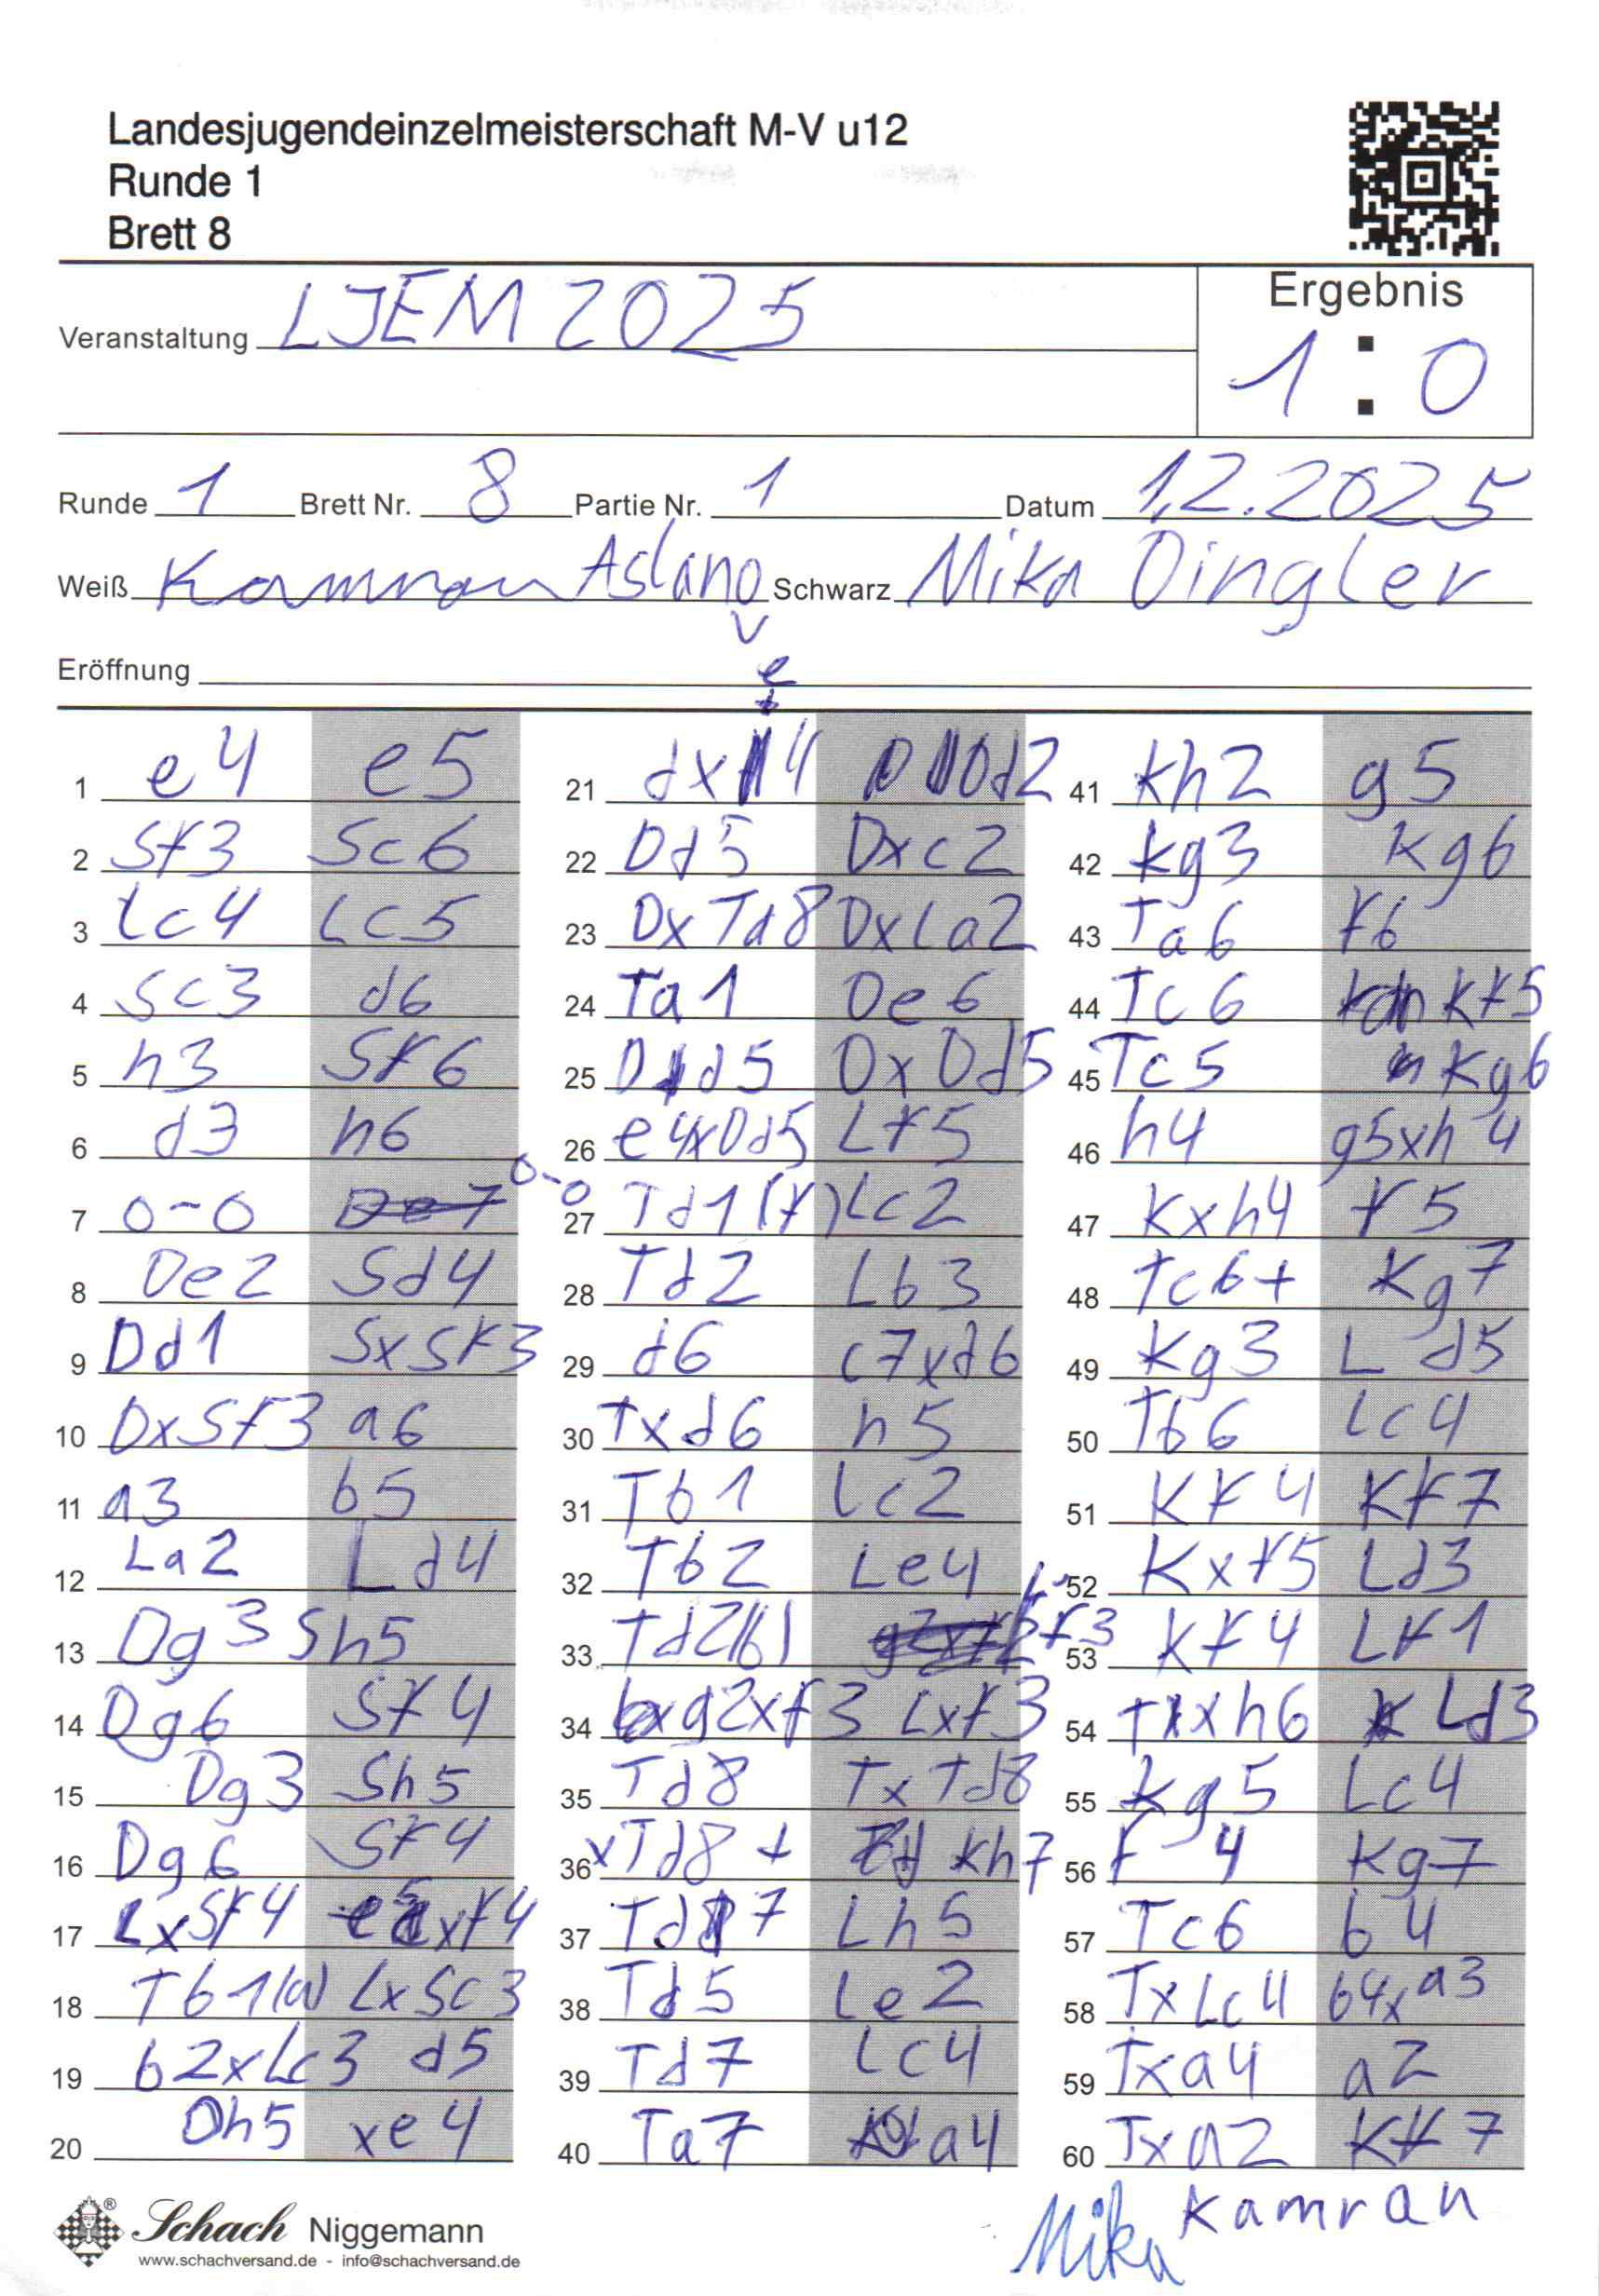 Landesjugendeinzelmeisterschaft M-V u12
Runde 1
Brett 8
Ergebnis
Veranstaltung LJEM 2025
1 : 0
Runde 1 Brett Nr. 8 Partie Nr. 1 Datum 1.2.2025
Weiß Kamran Aslanov Schwarz Mika Dingler
Eröffnung
1 e4 e5
2 Sf3 Sc6
3 Lc4 Lc5
4 Sc3 d6
5 h3 Sf6
6 d3 h6
7 0-0 0-0
8 De2 Sd4
9 Dd1 SxSf3
10 DxSf3 a6
11 a3 b5
12 La2 Ld4
13 Dg3 Sh5
14 Dg6 Sf4
15 Dg3 Sh5
16 Dg6 Sf4
17 LxSf4 e5xf4
18 Tb1(a) LxSc3
19 b2xLc3 d5
20 Dh5 xe4
21 dxe4 Dd2
22 Dd5 Dxc2
23 DxTd8 DxLa2
24 Ta1 De6
25 Dd5 DxDd5
26 e4xDd5 Lf5
27 Td1(f) Lc2
28 Td2 Lb3
29 d6 c7xd6
30 Txd6 h5
31 Tb1 Lc2
32 Tb2 Le4
33 Td2(b) f3
34 g2xf3 Lxf3
35 Td8 TxTd8
36 xTd8+ Kh7
37 Td7 Lh5
38 Td5 Le2
39 Td7 Lc4
40 Ta7 a4
41 Kh2 g5
42 Kg3 Kg6
43 Ta6 f6
44 Tc6 Kf5
45 Tc5 Kg6
46 h4 g5xh4
47 Kxh4 f5
48 Tc6+ Kg7
49 Kg3 Ld5
50 Tb6 Lc4
51 Kf4 Kf7
52 Kxf5 Ld3
53 Kf4 Lf1
54 Txh6 Ld3
55 Kg5 Lc4
56 f4 Kg7
57 Tc6 b4
58 TxLc4 b4xa3
59 Txa4 a2
60 Txa2 Kf7
Mika Kamran
Schach Niggemann
www.schachversand.de - info@schachversand.de